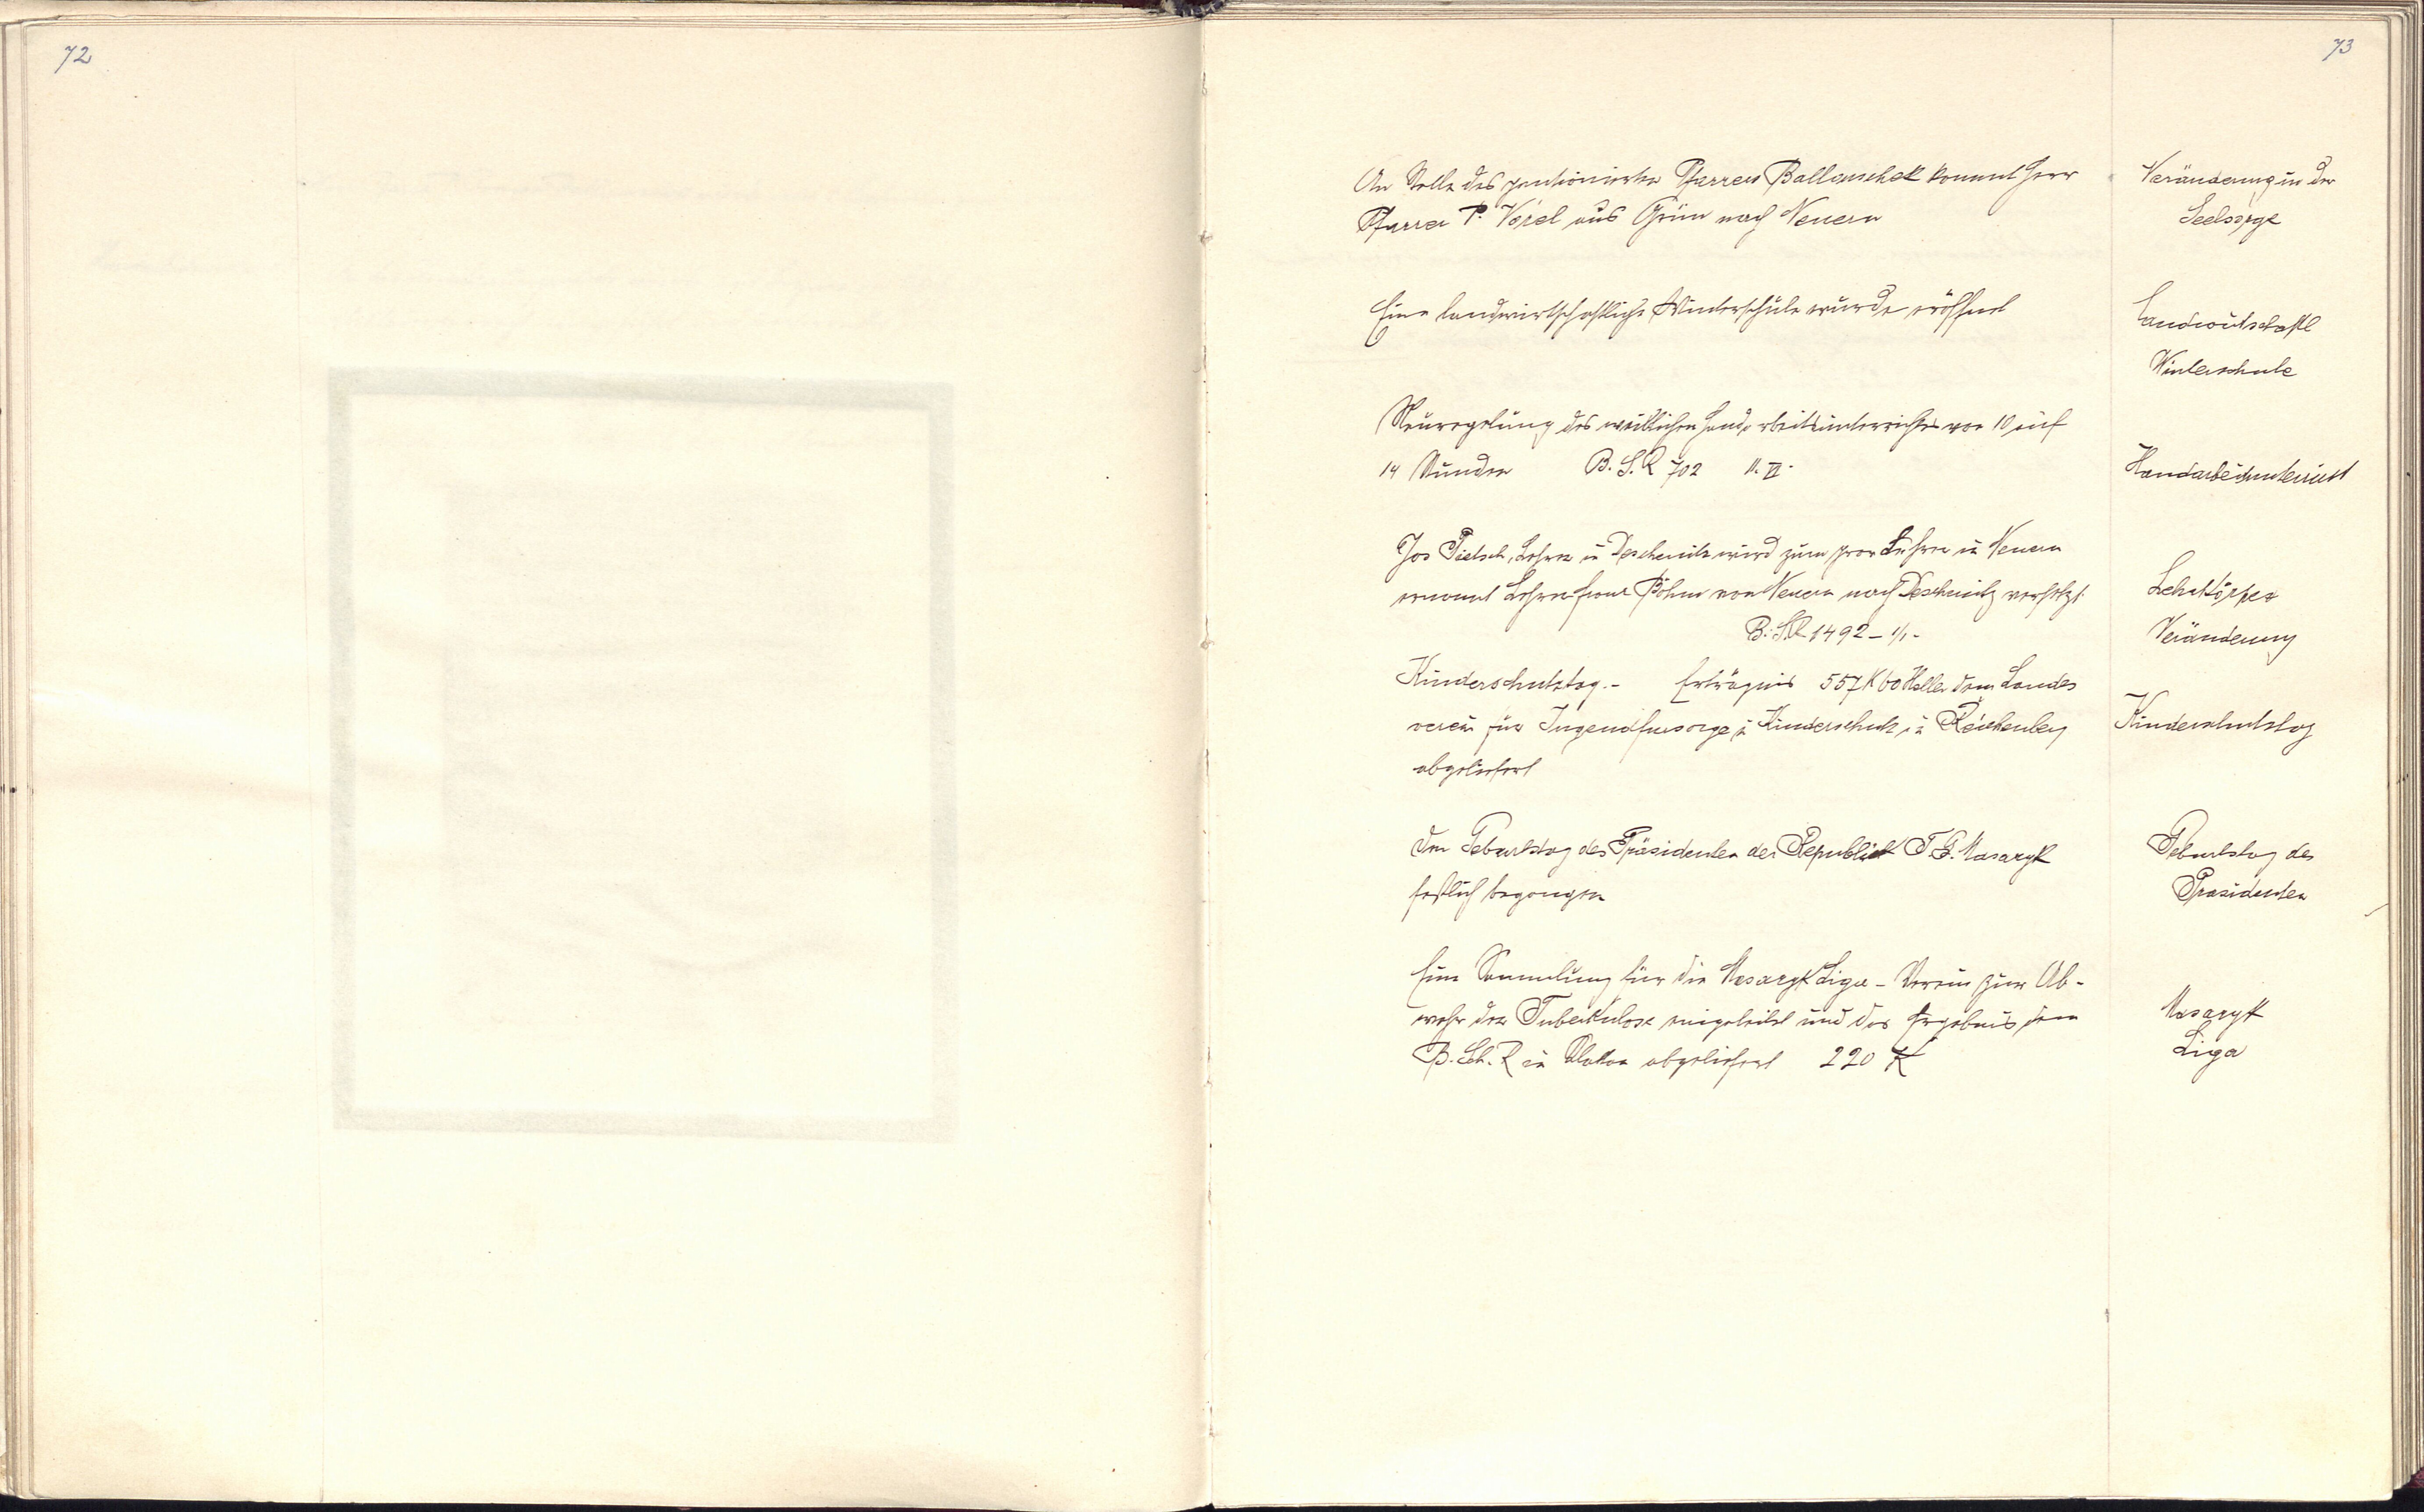 72
73
An Stelle des pensionierten Pfarrers Ballauschek kommt Herr
Pfarrer P. Vorel aus Grün nach Neuern
Veränderung in der
Seelsorge
Eine landwirtschaftliche Winterschule wurde eröffnet
Landwirtschaftl
Winterschule
Neuregelung des weiblichen Handarbeitsunterrichtes von 10 auf
14 Stunden B. S. R 702 11. VI.
Handarbeitsunterricht
Jos Pietsch, Lehrer in Deschenitz wird zum prov Lehrer in Neuern
ernannt Lehrer Franz Böhm von Neuern nach Deschenitz versetzt
B. S. R 1492 –
Lehrkörper
Veränderung
Kinderschutztag.– Erträgnis 557 K 60 Heller dem Landes
verein für Jugendfürsorge u Kinderschutz in Reichenberg
abgeliefert
Kinderschutztag
Den Geburtstag des Präsidenten der Republick T. G. Masaryk
festlich begangen
Geburtstag des
Präsidenten
Eine Sammlung für die Masaryk Liga – Verein zur Ab-
wehr der Tuberkulose eingeleitet und das Ergebnis dem
B. Sch. R in Klattau abgeliefert 220 K
Masaryk
Liga